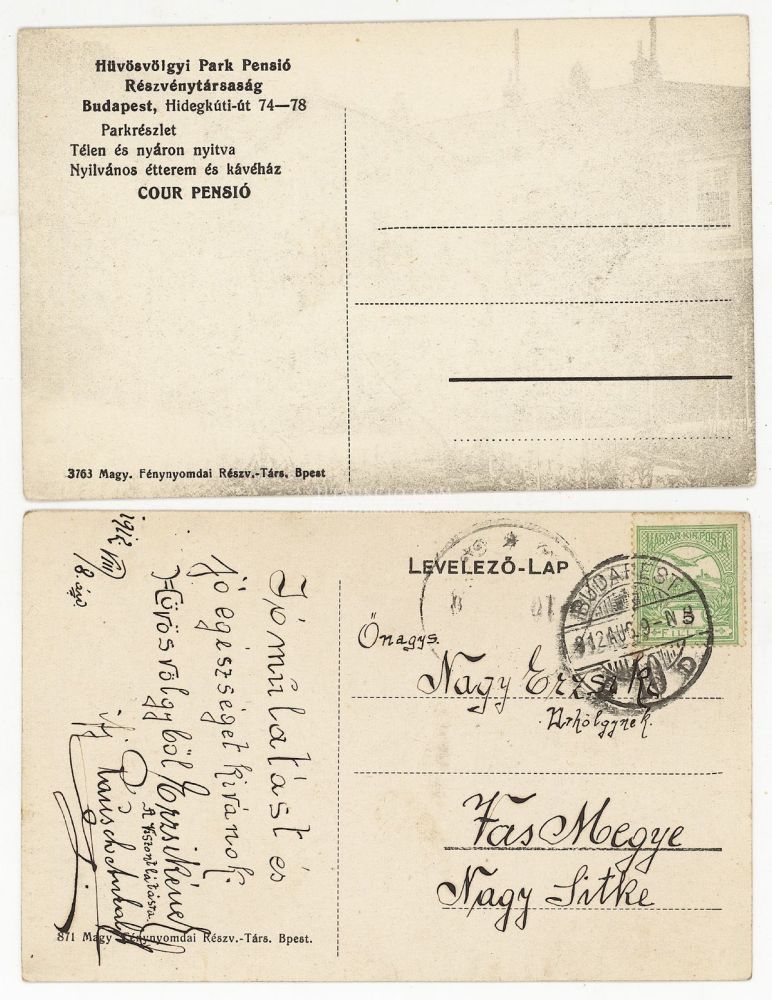 Hűvösvölgyi Park Pensió
Részvénytársaság
Budapest, Hidegkúti-út 74—78
Parkrészlet
Télen és nyáron nyitva
Nyilvános étterem és kávéház
COUR PENSIÓ
3763 Magy. Fénynyomdai Részv.-Társ. Bpest
LEVELEZŐ-LAP
MAGYAR KIR. POSTA
BUDAPEST
912 AUG. 9-N
Őnagys.
Nagy Erzsi
Úrhölgynek.
Vas Megye
Nagy Sitke
1912 VIII
Jó mulatást és
jó egészséget kívánok
Hűvösvölgyből Erzsikének
A viszontlátásra
ifj
871 Magy. Fénynyomdai Részv.-Társ. Bpest.